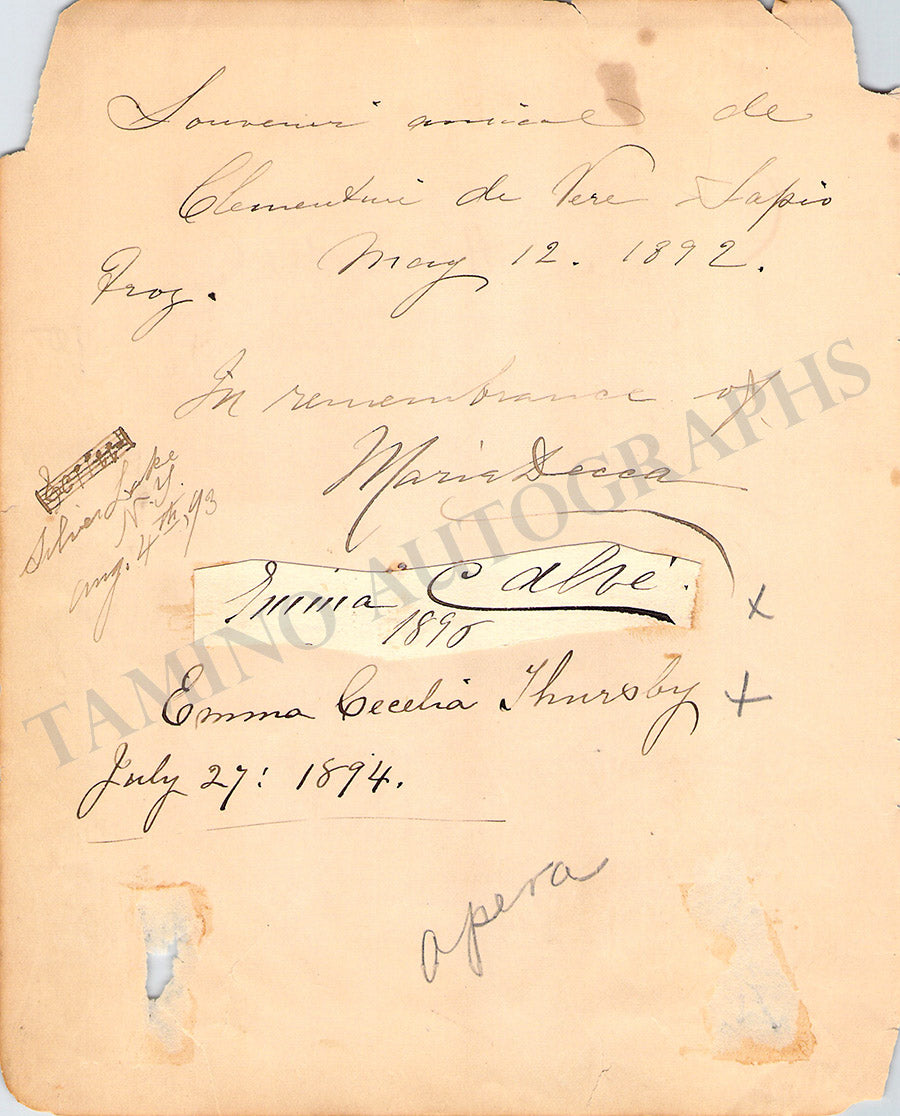 Souvenir amical de
Clementine de Vere Sapio
Troy. May 12. 1892.
In remembrance of
Maria Decca
Silver Lake
N.Y.
Aug. 4th, 93
Emma Calvé.
Emma Cecelia Thursby
July 27: 1894.
opera
TAMINO AUTOGRAPHS